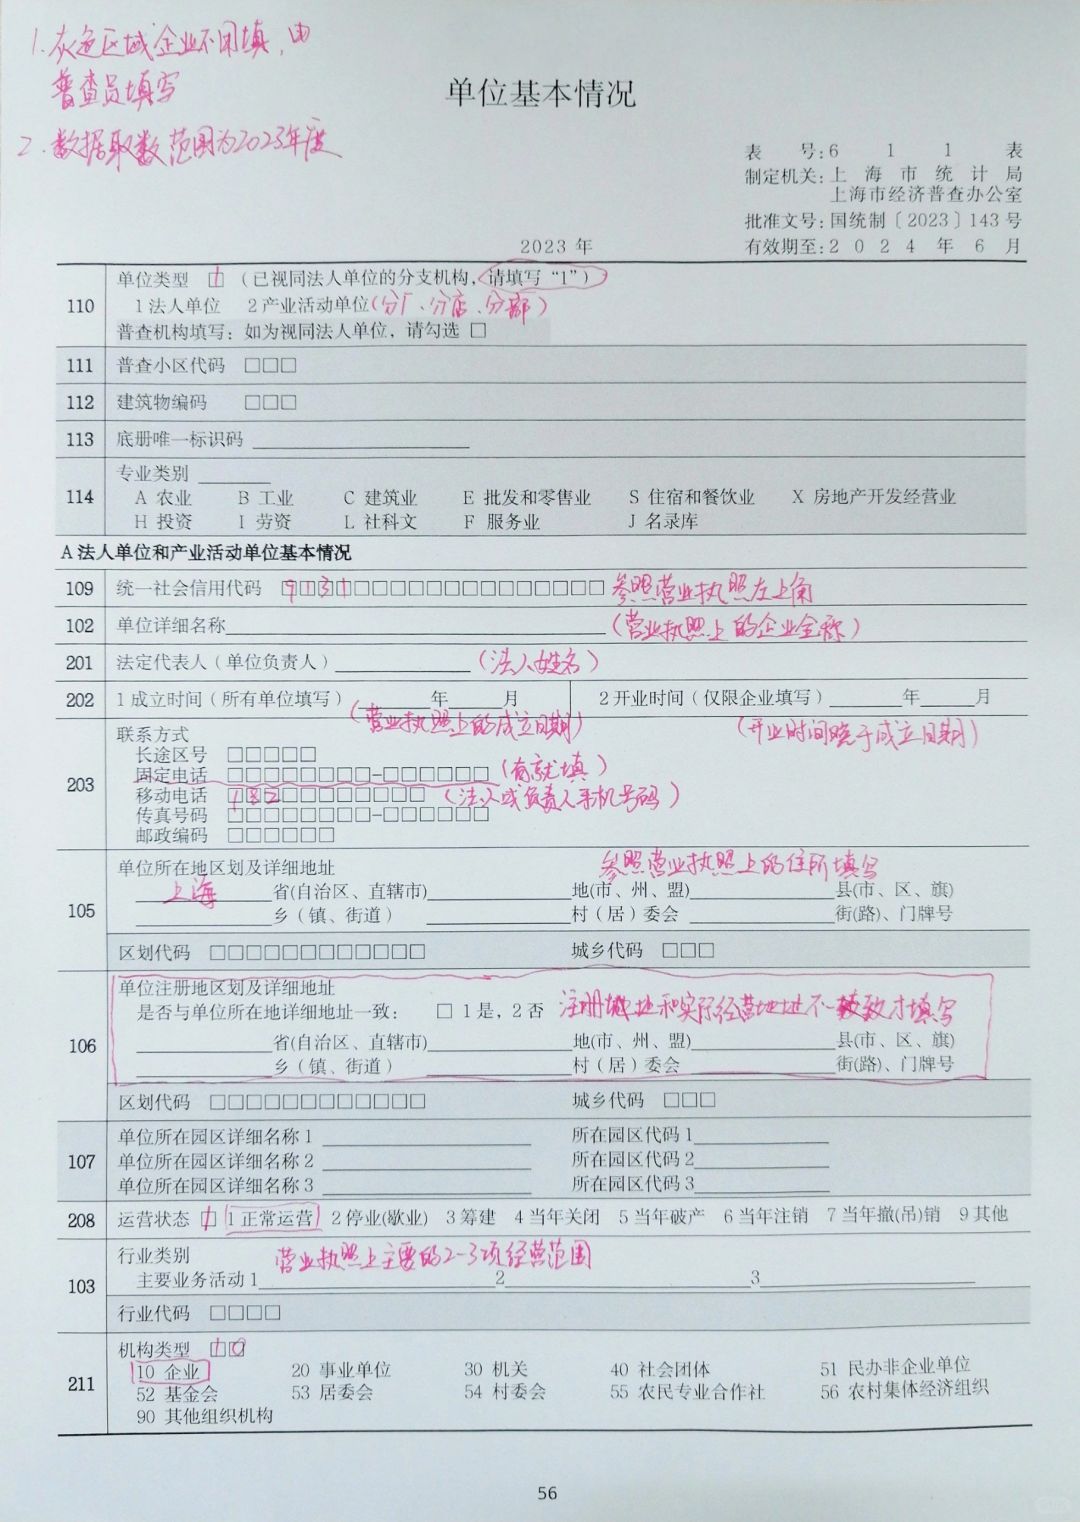 1.灰色区域企业不用填,由
普查员填写
2.数据取数范围为2023年度
单位基本情况
表 号:6 1 1 表
制定机关:上 海 市 统 计 局
上海市经济普查办公室
批准文号:国统制〔2023〕143号
2023 年
有效期至:2 0 2 4 年 6 月
110 单位类型 □1 (已视同法人单位的分支机构,请填写“1”)
1 法人单位 2 产业活动单位(分厂、分店、分部)
普查机构填写:如为视同法人单位,请勾选 □
111 普查小区代码 □□□
112 建筑物编码 □□□
113 底册唯一标识码 ________
114 专业类别 ________
A 农业 B 工业 C 建筑业 E 批发和零售业 S 住宿和餐饮业 X 房地产开发经营业
H 投资 I 劳资 L 社科文 F 服务业 J 名录库
A 法人单位和产业活动单位基本情况
109 统一社会信用代码 9131□□□□□□□□□□□□□□ 参照营业执照左上角
102 单位详细名称________ (营业执照上的企业全称)
201 法定代表人(单位负责人)________ (法人姓名)
202 1 成立时间(所有单位填写)____年____月 2 开业时间(仅限企业填写)____年____月
(营业执照上的成立日期) (开业时间晚于成立日期)
203 联系方式
长途区号 □□□□□
固定电话 □□□□□□□□-□□□□□□ (有就填)
移动电话 182□□□□□□□□ (法人或负责人手机号码)
传真号码 □□□□□□□□-□□□□□□
邮政编码 □□□□□□
105 单位所在地区划及详细地址 参照营业执照上的住所填写
上海 省(自治区、直辖市)________地(市、州、盟)________县(市、区、旗)
________乡(镇、街道)________村(居)委会________街(路)、门牌号
区划代码 □□□□□□□□□□□□ 城乡代码 □□□
106 单位注册地区划及详细地址
是否与单位所在地详细地址一致: □ 1 是,2 否 注册地址和实际经营地址不一致才填写
________省(自治区、直辖市)________地(市、州、盟)________县(市、区、旗)
________乡(镇、街道)________村(居)委会________街(路)、门牌号
区划代码 □□□□□□□□□□□□ 城乡代码 □□□
107 单位所在园区详细名称 1 ________ 所在园区代码 1________
单位所在园区详细名称 2 ________ 所在园区代码 2________
单位所在园区详细名称 3 ________ 所在园区代码 3________
208 运营状态 □1 1 正常运营 2 停业(歇业) 3 筹建 4 当年关闭 5 当年破产 6 当年注销 7 当年撤(吊)销 9 其他
103 行业类别 营业执照上主要的2-3项经营范围
主要业务活动 1________2________3________
行业代码 □□□□
211 机构类型 10
10 企业 20 事业单位 30 机关 40 社会团体 51 民办非企业单位
52 基金会 53 居委会 54 村委会 55 农民专业合作社 56 农村集体经济组织
90 其他组织机构
56